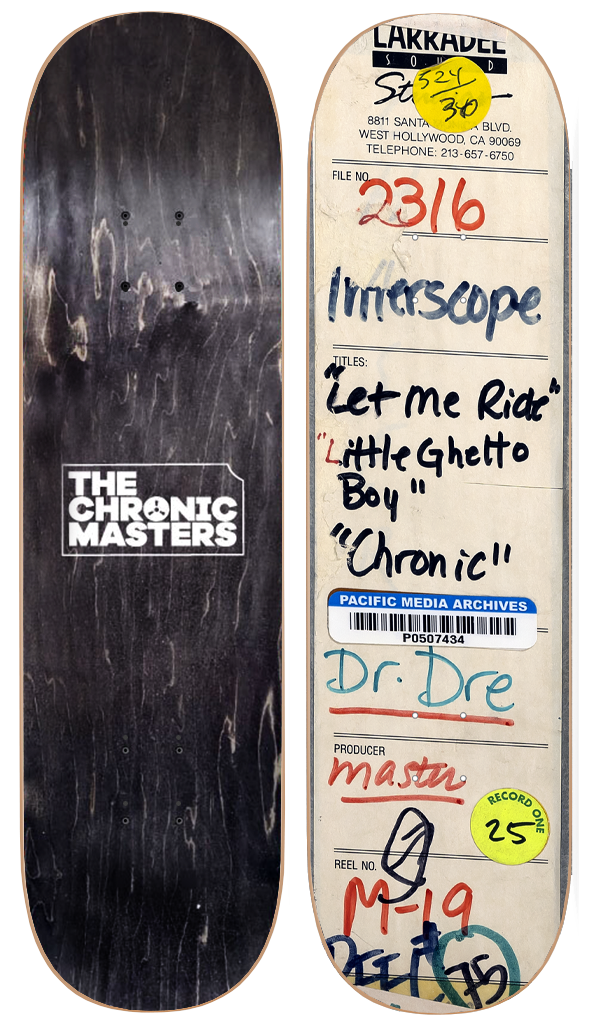 THE
CHRONIC
MASTERS
LARRABEE
SOUND
524/30
8811 SANTA BLVD.
WEST HOLLYWOOD, CA 90069
TELEPHONE: 213-657-6750
FILE NO.
2316
Interscope
TITLES:
"Let Me Ride"
"Little Ghetto
Boy"
"Chronic"
PACIFIC MEDIA ARCHIVES
P0507434
Dr. Dre
PRODUCER
master
RECORD ONE
25
REEL NO.
M-19
REEL #
75